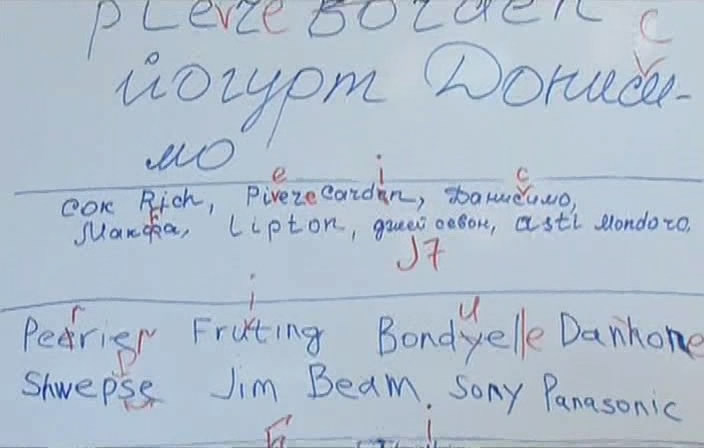 йогурт Дониси-
мо
сок Rich, Piereze Cardin, Данисимо,
Макфа, Lipton, джей севон, asti Mondoro,
J7
Fruting Bondyelle Danhone
Shwepse Jim Beam. Sony Panasonic